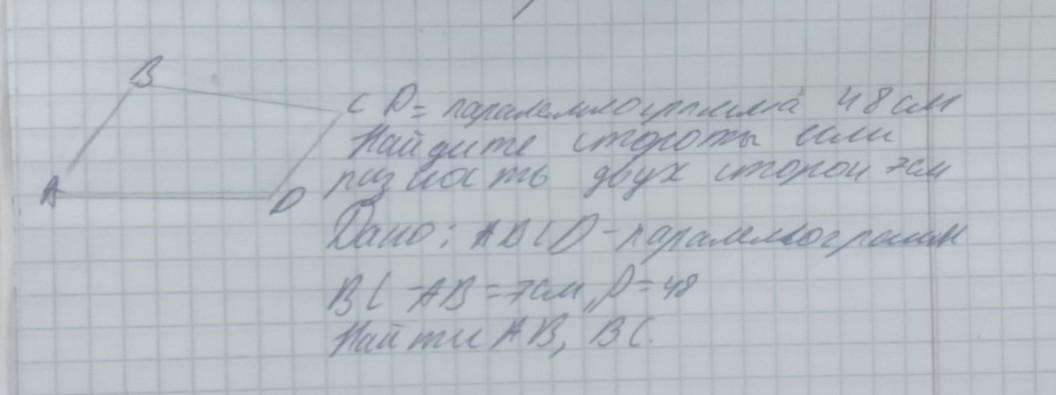 B
C P= параллелограмма 48 см
Найдите стороны если
разность двух сторон 7см
A
D
Дано: ABCD - параллелограмм
BC - AB = 7см, P = 48
Найти AB, BC.